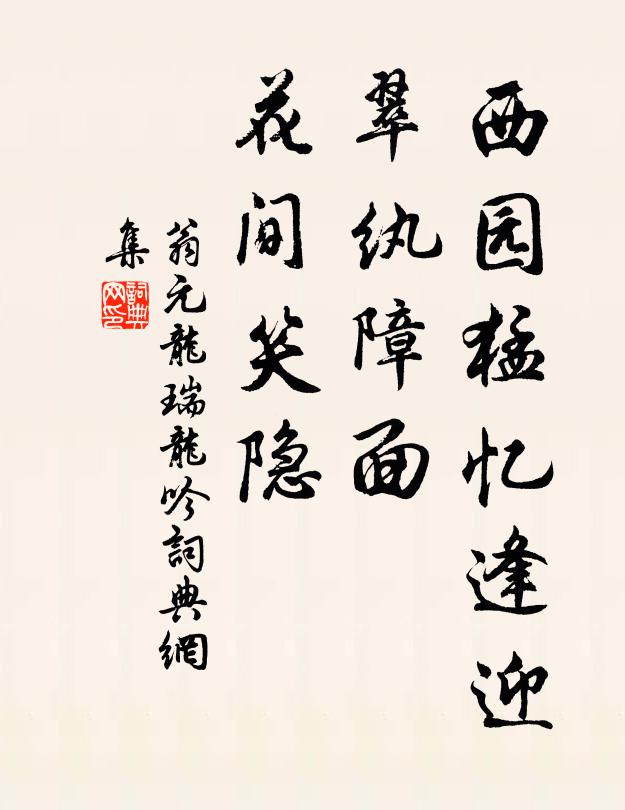 西园猛忆逢迎
翠纨障面
花间笑隐
翁元龍瑞龍吟詞典網
集
詞典
网印